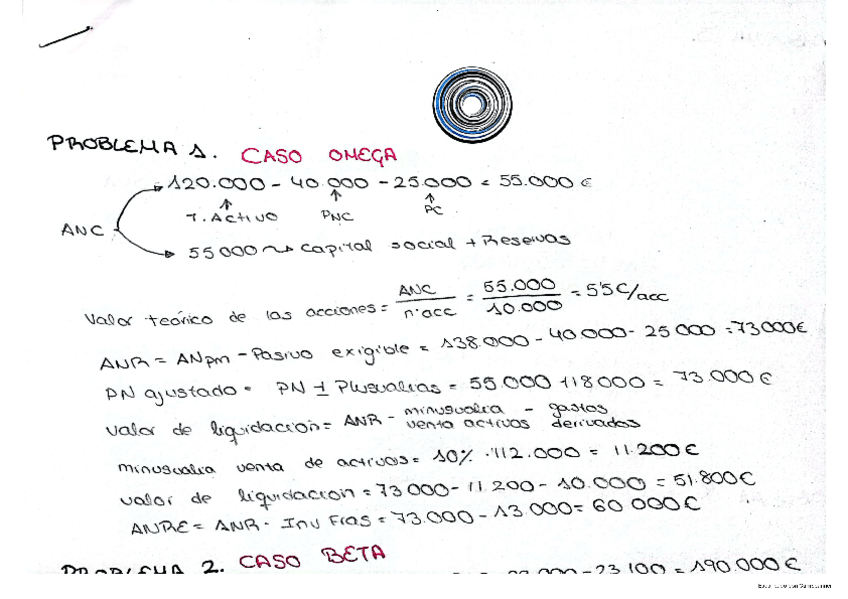 PROBLEMA 1. CASO OMEGA
120.000 - 40.000 - 25.000 = 55.000 €
T. Activo PNC PC
ANC
55000 ~> Capital social + Reservas
Valor teórico de las acciones = ANC / nºacc = 55.000 / 10.000 = 5'5€/acc
ANR = ANpm - Pasivo exigible = 138.000 - 40.000 - 25 000 = 73000€
PN ajustado = PN ± Plusvalias = 55.000 + 18 000 = 73.000 €
Valor de liquidacion = ANR - minusvalia venta activos - gastos derivados
minusvalia venta de activos = 10% · 112.000 = 11.200 €
valor de liquidacion = 73 000 - 11.200 - 10.000 = 51.800€
ANRE = ANR - Inv Fias = 73.000 - 13.000 = 60 000 €
PROBLEMA 2. CASO BETA
- 23.100 = 190.000 €